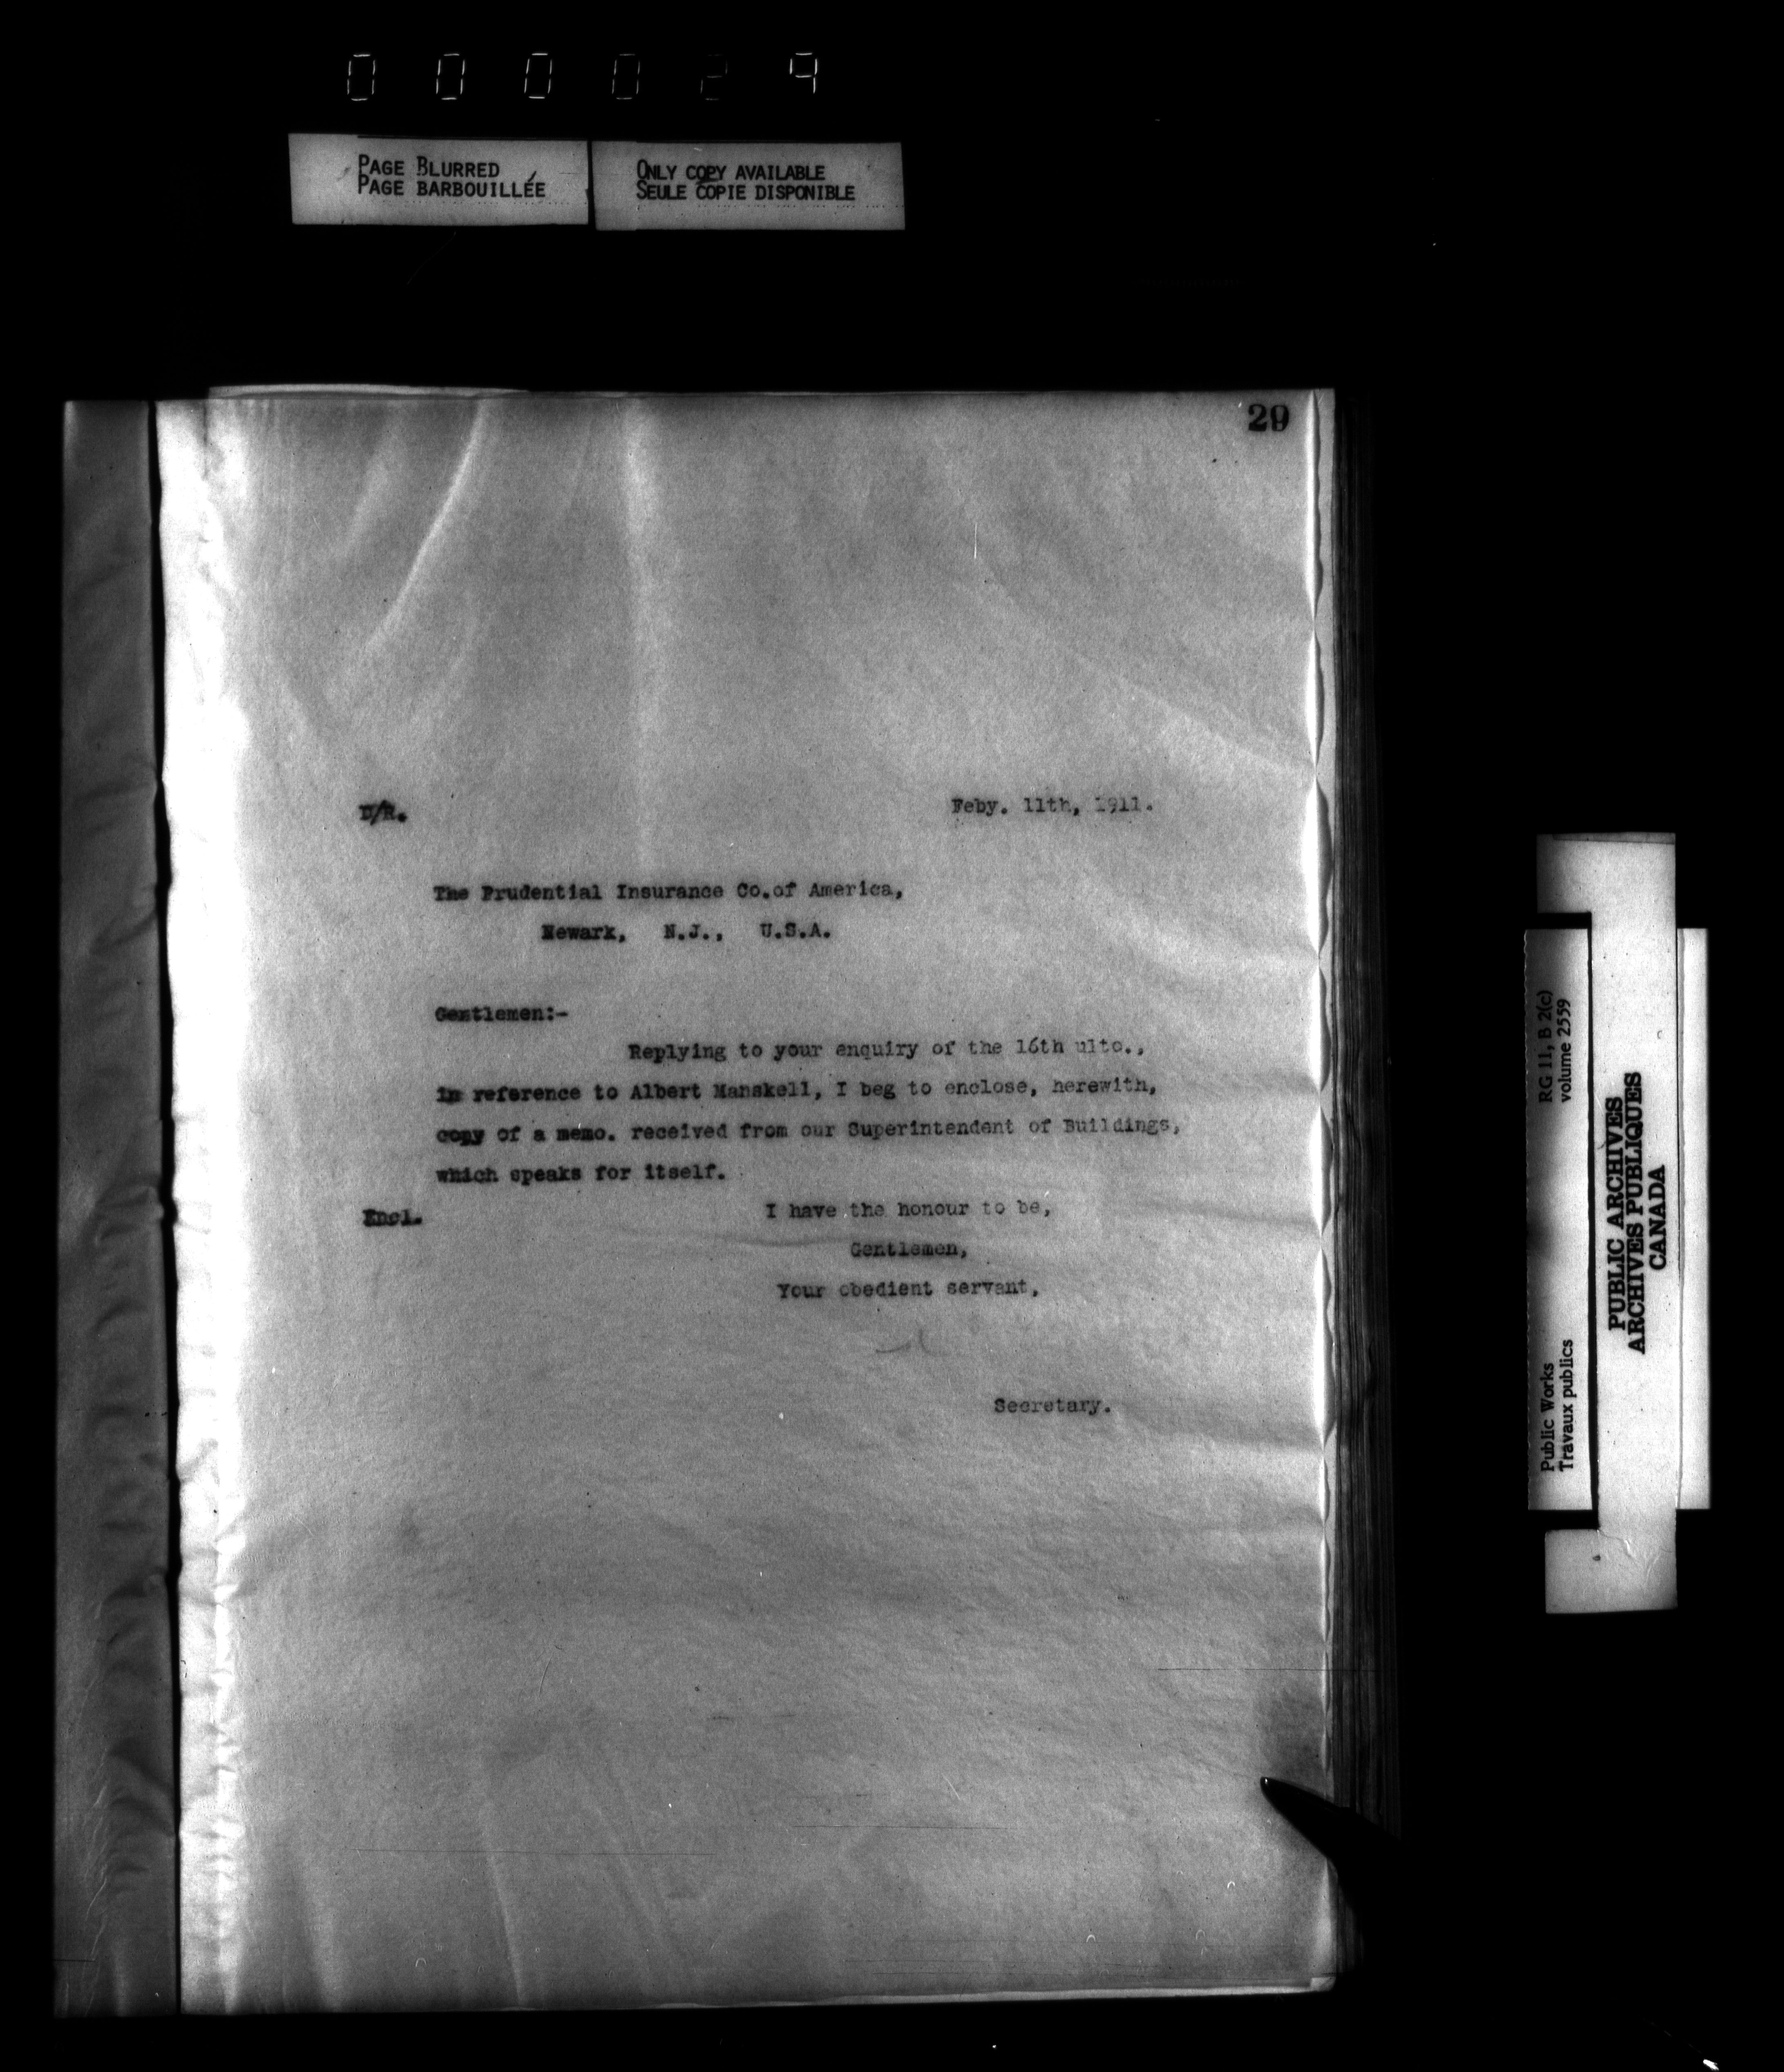 000029
PAGE BLURRED
PAGE BARBOUILLÉE
ONLY COPY AVAILABLE
SEULE COPIE DISPONIBLE
29
D/R.
Feby. 11th, 1911.
The Prudential Insurance Co.of America,
Newark, N.J., U.S.A.
Gentlemen:-
Replying to your enquiry of the 16th ulto.,
in reference to Albert Manskell, I beg to enclose, herewith,
copy of a memo. received from our Superintendent of Buildings,
which speaks for itself.
Encl.
I have the honour to be,
Gentlemen,
Your obedient servant,
Secretary.
RG 11, B 2(c)
volume 2559
Public Works
Travaux publics
PUBLIC ARCHIVES
ARCHIVES PUBLIQUES
CANADA